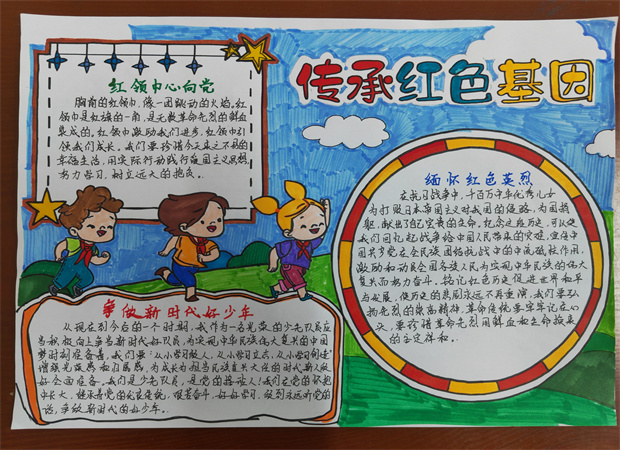 传承红色基因
红领巾心向党
胸前的红领巾,像一团跳动的火焰,红
领巾是红旗的一角,是无数革命先烈的鲜血
染成的。红领巾激励我们进步,红领巾引
领我们成长。我们要珍惜今天来之不易的
幸福生活,用实际行动践行爱国主义思想
努力学习,树立远大的抱负。
缅怀红色英烈
在抗日战争中,千百万中华优秀儿女
为打败日本帝国主义对我国的侵略,为国捐
躯,献出了自己宝贵的生命,纪念这段历史,可以使
我们回忆起战争给中国人民带来的灾难,坚信中
国共产党在全民族团结抗战中的中流砥柱作用,
激励和动员全国各族人民为实现中华民族的伟大
复兴而努力奋斗。铭记红色历史促进世界和平
与发展,使历史的悲剧永远不再重演,我们要弘
扬先烈的崇高精神,革命传统要牢牢记在心
头,要珍惜革命先烈用鲜血和生命换来
的安定祥和。
争做新时代好少年
从现在到今后的一个时期,我作为一名光荣的少先队员应
当积极向上争当新时代好队员,为实现中华民族伟大复兴的中国
梦时刻准备着,我们要"从小学习做人,从小学习立志,从小学习创造"
增强光荣感和归属感,为成长为担当民族复兴大任的时代新人做
好全面准备。我们是少先队员,是党的接班人!我们在党的怀抱
中长大,继承着党的光荣传统,艰苦奋斗,好好学习,做到永远听党的
话,争做新时代的好少年。